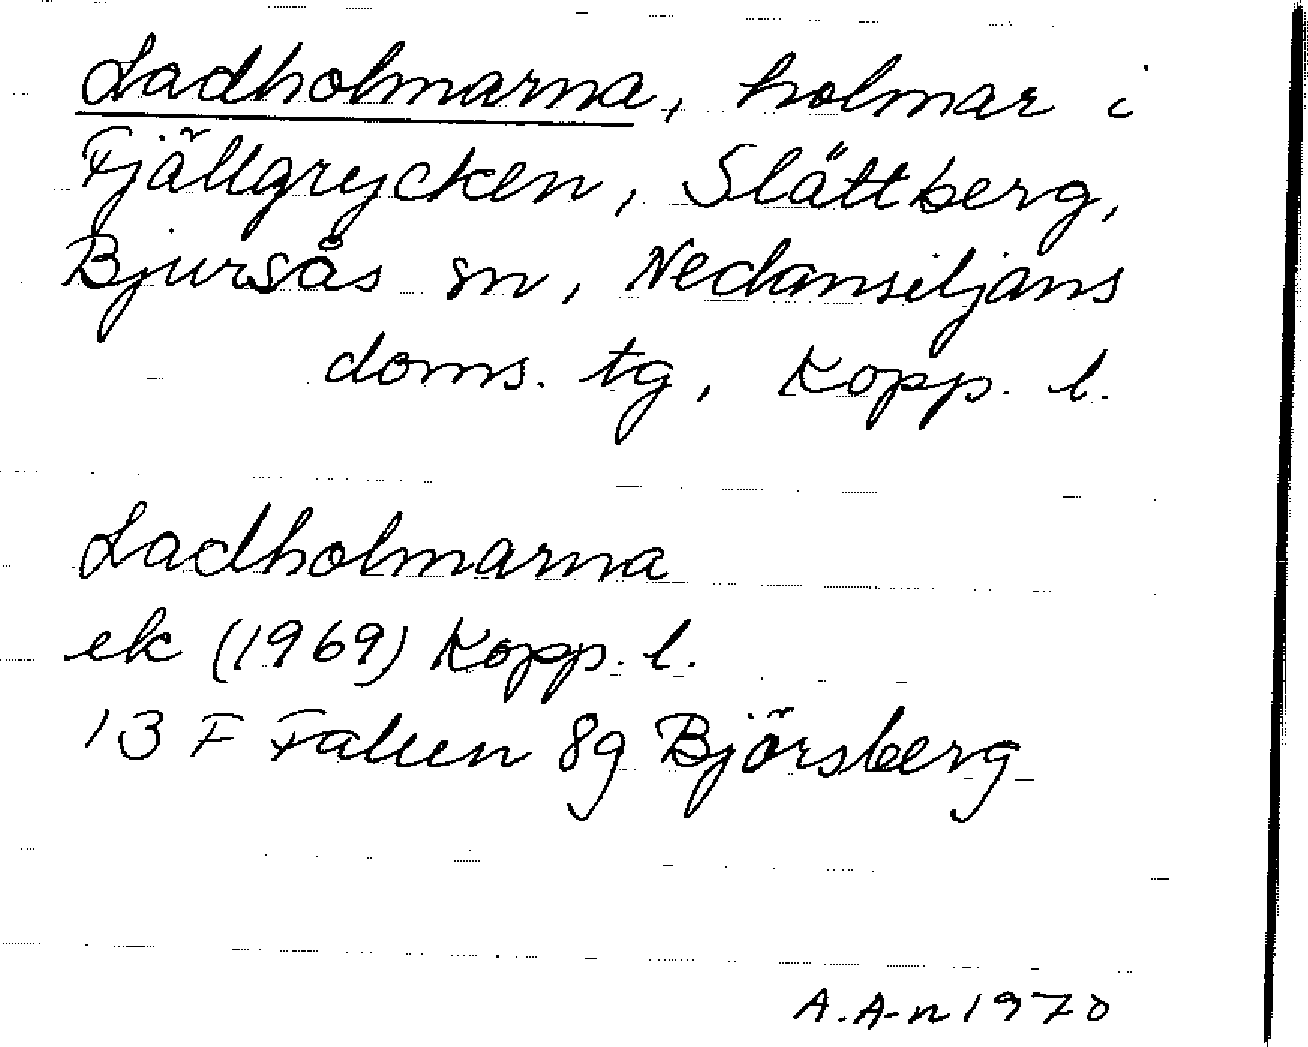 Ladholmarna, holmar i
Fjällgrycken, Slättberg,
Bjursås sn, Nedansiljans
doms. tg, Kopp. l.
Ladholmarna
ek (1969) Kopp. l.
13 F Falun 8g Björsberg
A. A-n 1970